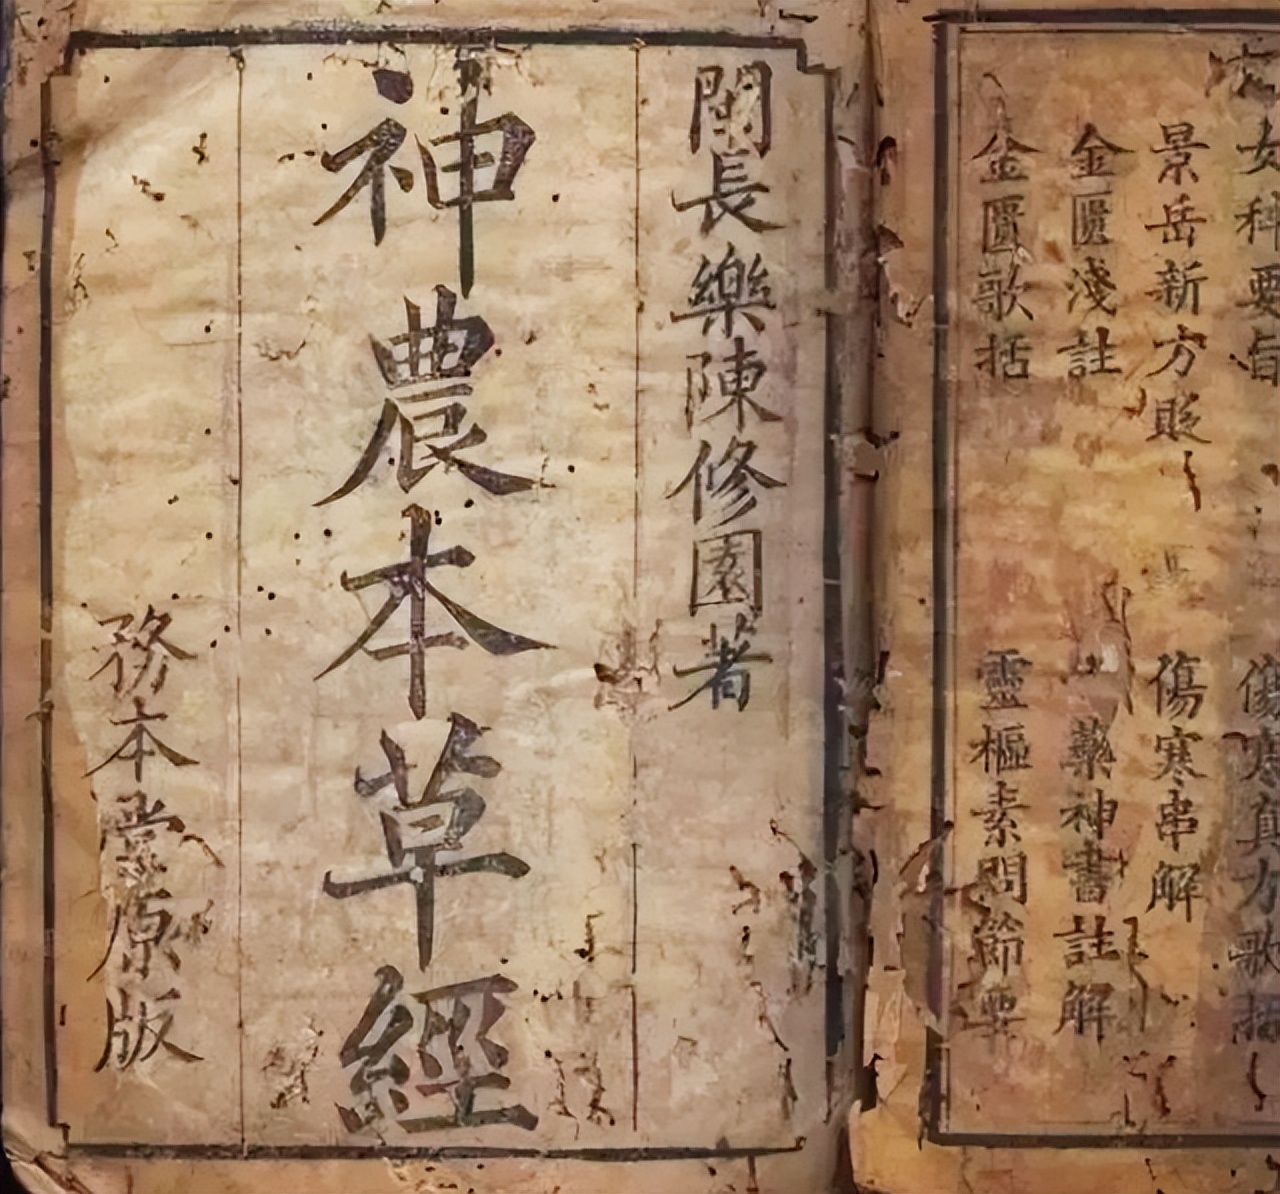 女科要旨 傷寒眞方歌括
景岳新方貶 傷寒串解
金匱淺註 藥神書註解
金匱歌括 靈樞素問節要
閩長樂陳修園著
神農本草經
務本堂原版